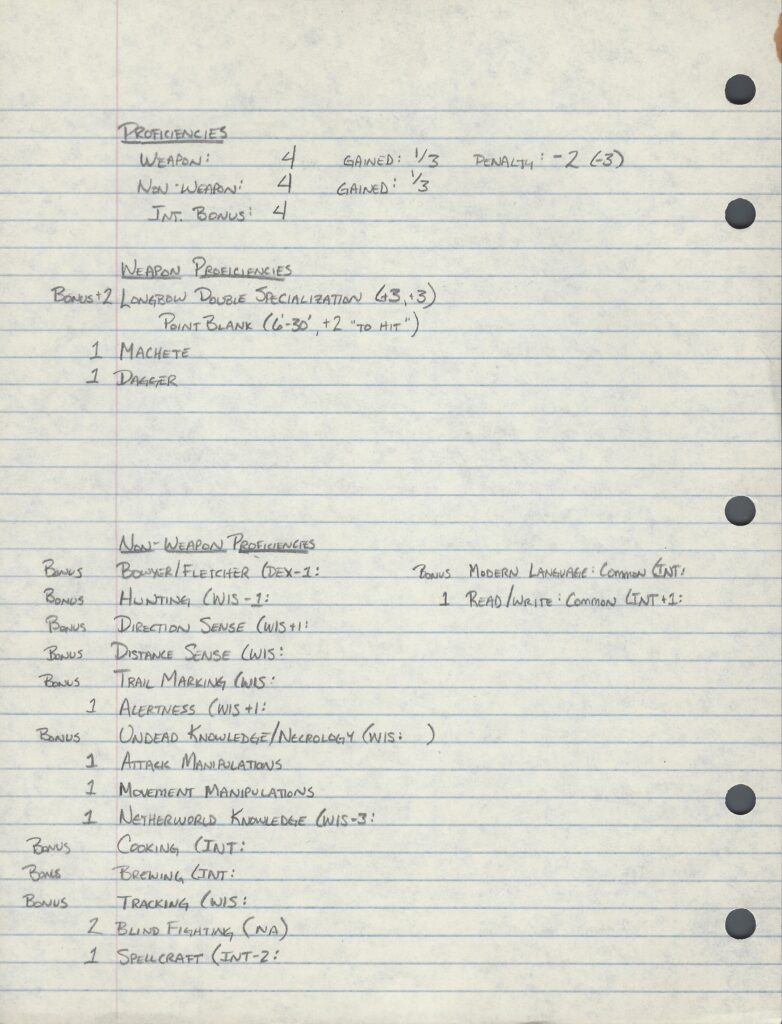 PROFICIENCIES
WEAPON: 4 GAINED: 1/3 PENALTY: -2 (-3)
NON-WEAPON: 4 GAINED: 1/3
INT. BONUS: 4
WEAPON PROFICIENCIES
BONUS+2 LONGBOW DOUBLE SPECIALIZATION (+3,+3)
POINT BLANK (6'-30', +2 "TO HIT")
1 MACHETE
1 DAGGER
NON-WEAPON PROFICIENCIES
BONUS BOWYER/FLETCHER (DEX-1: BONUS MODERN LANGUAGE: COMMON (INT:
BONUS HUNTING (WIS-1: 1 READ/WRITE: COMMON (INT+1:
BONUS DIRECTION SENSE (WIS+1:
BONUS DISTANCE SENSE (WIS:
BONUS TRAIL MARKING (WIS:
1 ALERTNESS (WIS+1:
BONUS UNDEAD KNOWLEDGE/NECROLOGY (WIS: )
1 ATTACK MANIPULATIONS
1 MOVEMENT MANIPULATIONS
1 NETHERWORLD KNOWLEDGE (WIS-3:
BONUS COOKING (INT:
BONUS BREWING (INT:
BONUS TRACKING (WIS:
2 BLIND FIGHTING (NA)
1 SPELLCRAFT (INT-2: